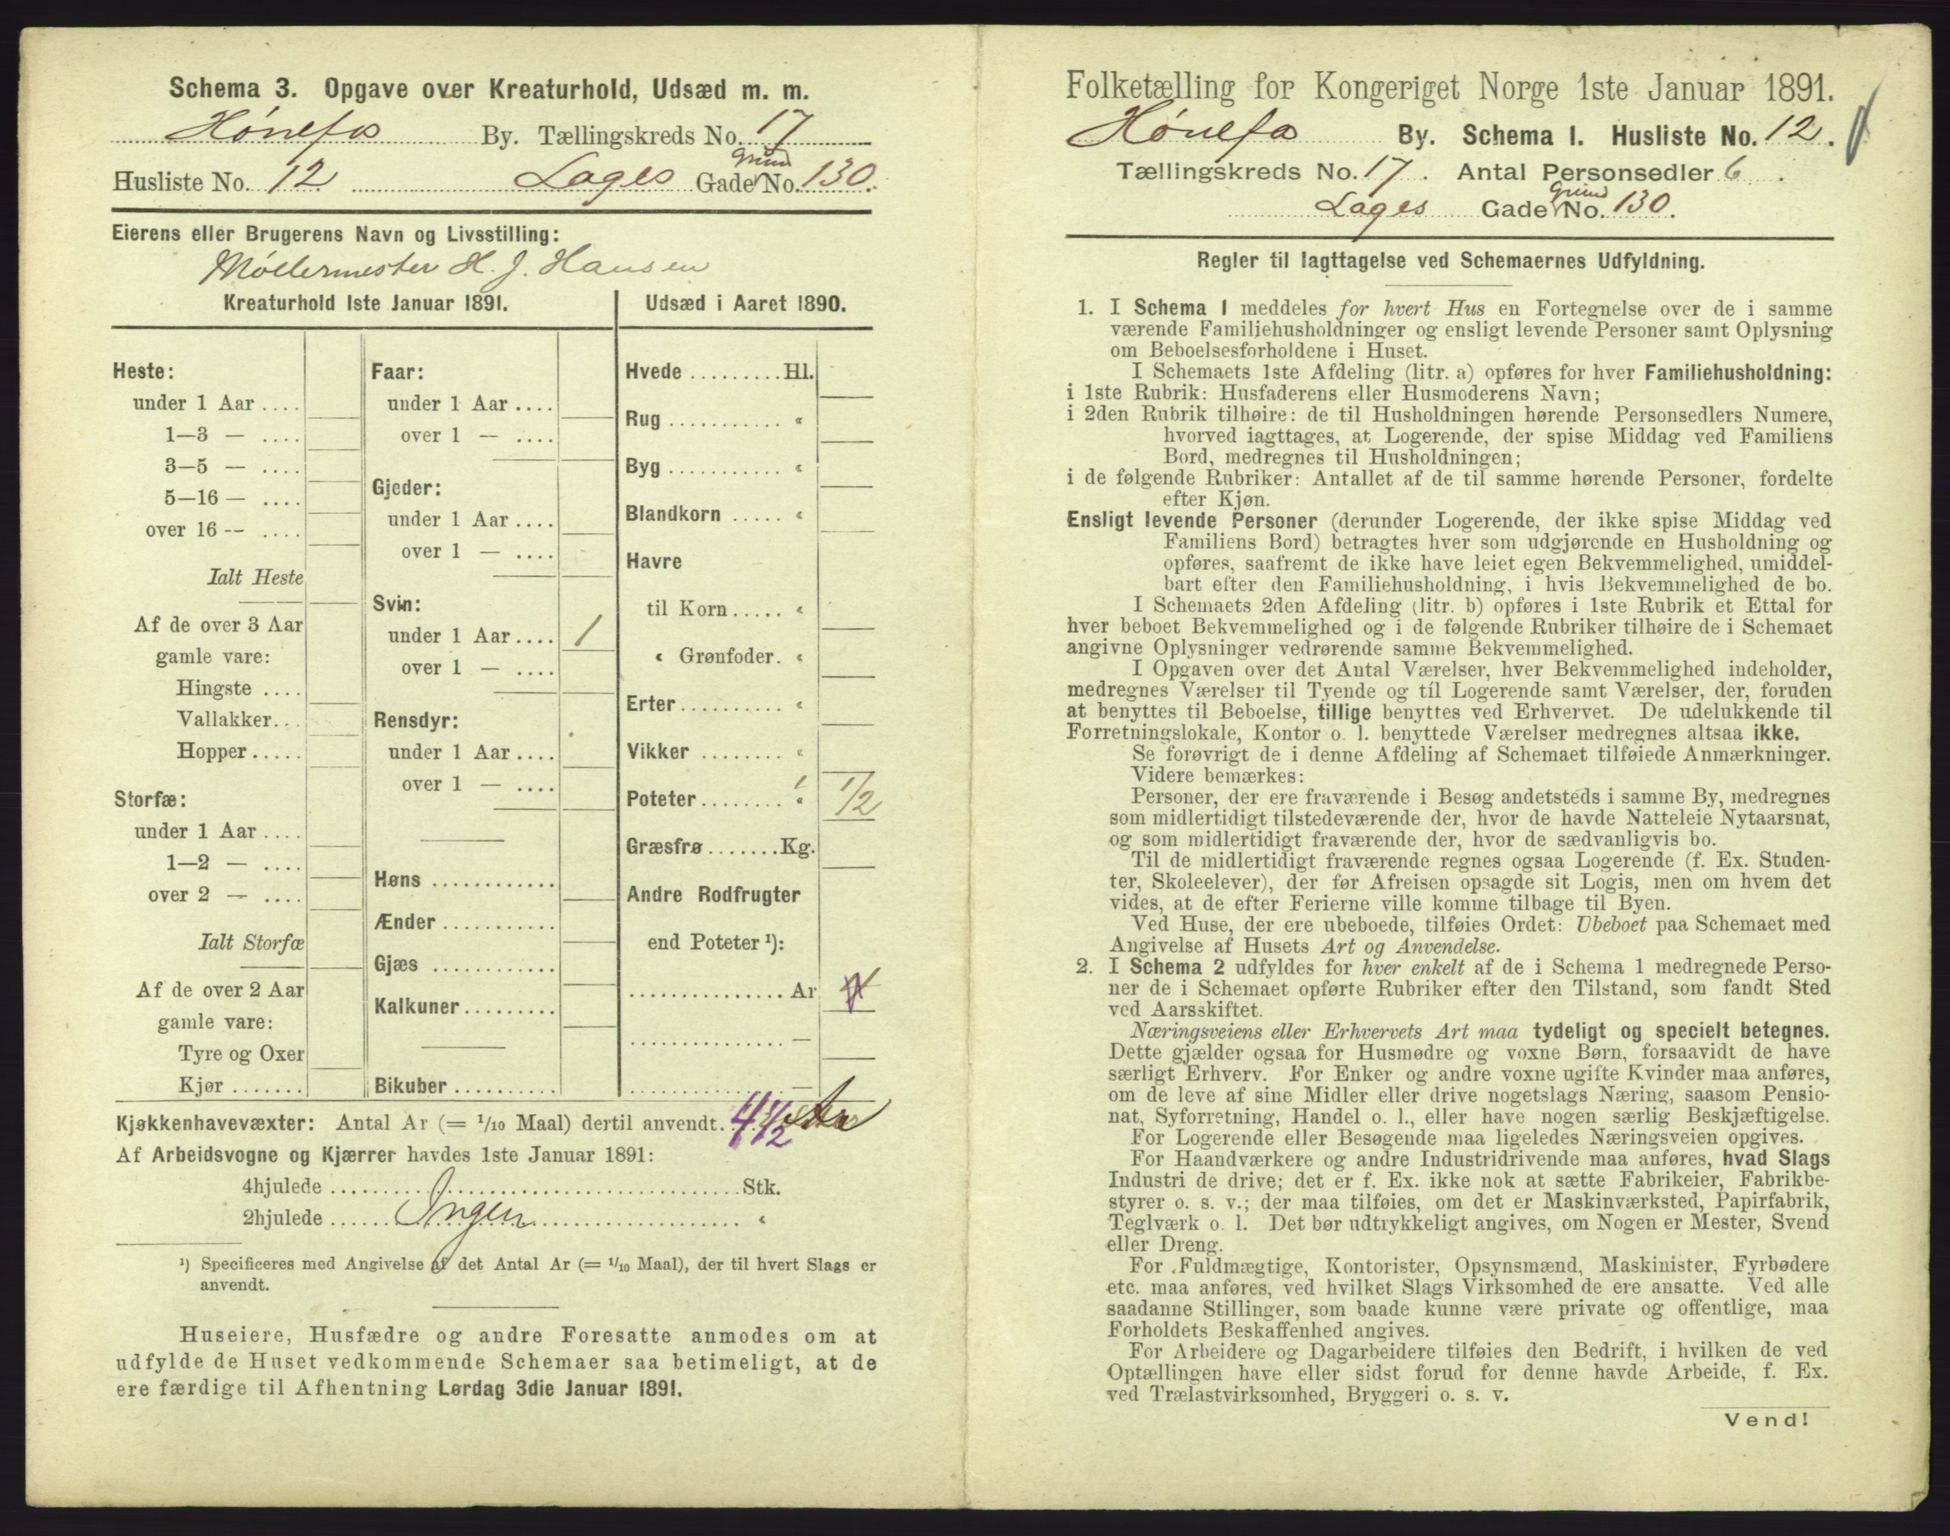 Schema 3. Opgave over Kreaturhold, Udsæd m. m.
Hønefos By. Tællingskreds No. 17
Husliste No. 12 Lages Gade Grund No. 130.
Eierens eller Brugerens Navn og Livsstilling:
Møllermester H. J. Hansen
Kreaturhold 1ste Januar 1891.
Heste:
under 1 Aar ....
1—3 — ....
3—5 — ....
5—16 — ....
over 16 -- ....
Ialt Heste
Af de over 3 Aar
gamle vare:
Hingste ....
Vallakker...
Hopper.....
Storfæ:
under 1 Aar ....
1—2 — ....
over 2 — ....
Ialt Storfæ
Af de over 2 Aar
gamle vare:
Tyre og Oxer
Kjør .......
Faar:
under 1 Aar ....
over 1 — ....
Gjeder:
under 1 Aar ....
over 1 — ....
Svin:
under 1 Aar .... 1
over 1 — ....
Rensdyr:
under 1 Aar ....
over 1 — ....
Høns ............
Ænder ...........
Gjæs ............
Kalkuner .........
Bikuber ..........
Udsæd i Aaret 1890.
Hvede ......... Hl.
Rug ........... «
Byg ........... «
Blandkorn ..... «
Havre
til Korn ..... «
« Grønfoder. «
Erter .......... «
Vikker ........ «
Poteter ........ « 1/2
Græsfrø ....... Kg.
Andre Rodfrugter
end Poteter ¹):
............... Ar
............... —
............... —
Kjøkkenhavevæxter: Antal Ar (= 1/10 Maal) dertil anvendt. 4 1/2 Ar
Af Arbeidsvogne og Kjærrer havdes 1ste Januar 1891:
4hjulede .............................. Stk.
2hjulede ...... Ingen .................. «
¹) Specificeres med Angivelse af det Antal Ar (= 1/10 Maal), der til hvert Slags er
anvendt.
Huseiere, Husfædre og andre Foresatte anmodes om at
udfylde de Huset vedkommende Schemaer saa betimeligt, at de
ere færdige til Afhentning Lørdag 3die Januar 1891.
Folketælling for Kongeriget Norge 1ste Januar 1891.
Hønefos By. Schema I. Husliste No. 12.
Tællingskreds No. 17. Antal Personsedler 6.
Lages Gade Grund No. 130.
Regler til Iagttagelse ved Schemaernes Udfyldning.
1. I Schema 1 meddeles for hvert Hus en Fortegnelse over de i samme
værende Familiehusholdninger og ensligt levende Personer samt Oplysning
om Beboelsesforholdene i Huset.
I Schemaets 1ste Afdeling (litr. a) opføres for hver Familiehusholdning:
i 1ste Rubrik: Husfaderens eller Husmoderens Navn;
i 2den Rubrik tilhøire: de til Husholdningen hørende Personsedlers Numere,
hvorved iagttages, at Logerende, der spise Middag ved Familiens
Bord, medregnes til Husholdningen;
i de følgende Rubriker: Antallet af de til samme hørende Personer, fordelte
efter Kjøn.
Ensligt levende Personer (derunder Logerende, der ikke spise Middag ved
Familiens Bord) betragtes hver som udgjørende en Husholdning og
opføres, saafremt de ikke have leiet egen Bekvemmelighed, umiddel-
bart efter den Familiehusholdning, i hvis Bekvemmelighed de bo.
I Schemaets 2den Afdeling (litr. b) opføres i 1ste Rubrik et Ettal for
hver beboet Bekvemmelighed og i de følgende Rubriker tilhøire de i Schemaet
angivne Oplysninger vedrørende samme Bekvemmelighed.
I Opgaven over det Antal Værelser, hver Bekvemmelighed indeholder,
medregnes Værelser til Tyende og til Logerende samt Værelser, der, foruden
at benyttes til Beboelse, tillige benyttes ved Erhvervet. De udelukkende til
Forretningslokale, Kontor o. l. benyttede Værelser medregnes altsaa ikke.
Se forøvrigt de i denne Afdeling af Schemaet tilføiede Anmærkninger.
Videre bemærkes:
Personer, der ere fraværende i Besøg andetsteds i samme By, medregnes
som midlertidigt tilstedeværende der, hvor de havde Natteleie Nytaarsnat,
og som midlertidigt fraværende der, hvor de sædvanligvis bo.
Til de midlertidigt fraværende regnes ogsaa Logerende (f. Ex. Studen-
ter, Skoleelever), der før Afreisen opsagde sit Logis, men om hvem det
vides, at de efter Ferierne ville komme tilbage til Byen.
Ved Huse, der ere ubeboede, tilføies Ordet: Ubeboet paa Schemaet med
Angivelse af Husets Art og Anvendelse.
2. I Schema 2 udfyldes for hver enkelt af de i Schema 1 medregnede Perso-
ner de i Schemaet opførte Rubriker efter den Tilstand, som fandt Sted
ved Aarsskiftet.
Næringsveiens eller Erhvervets Art maa tydeligt og specielt betegnes.
Dette gjælder ogsaa for Husmødre og voxne Børn, forsaavidt de have
særligt Erhverv. For Enker og andre voxne ugifte Kvinder maa anføres,
om de leve af sine Midler eller drive nogetslags Næring, saasom Pensio-
nat, Syforretning, Handel o. l., eller have nogen særlig Beskjæftigelse.
For Logerende eller Besøgende maa ligeledes Næringsveien opgives.
For Haandværkere og andre Industridrivende maa anføres, hvad Slags
Industri de drive; det er f. Ex. ikke nok at sætte Fabrikeier, Fabrikbe-
styrer o. s. v.; der maa tilføies, om det er Maskinværksted, Papirfabrik,
Teglværk o. l. Det bør udtrykkeligt angives, om Nogen er Mester, Svend
eller Dreng.
For Fuldmægtige, Kontorister, Opsynsmænd, Maskinister, Fyrbødere
etc. maa anføres, ved hvilket Slags Virksomhed de ere ansatte. Ved alle
saadanne Stillinger, som baade kunne være private og offentlige, maa
Forholdets Beskaffenhed angives.
For Arbeidere og Dagarbeidere tilføies den Bedrift, i hvilken de ved
Optællingen have eller sidst forud for denne havde Arbeide, f. Ex.
ved Trælastvirksomhed, Bryggeri o. s. v.
Vend!